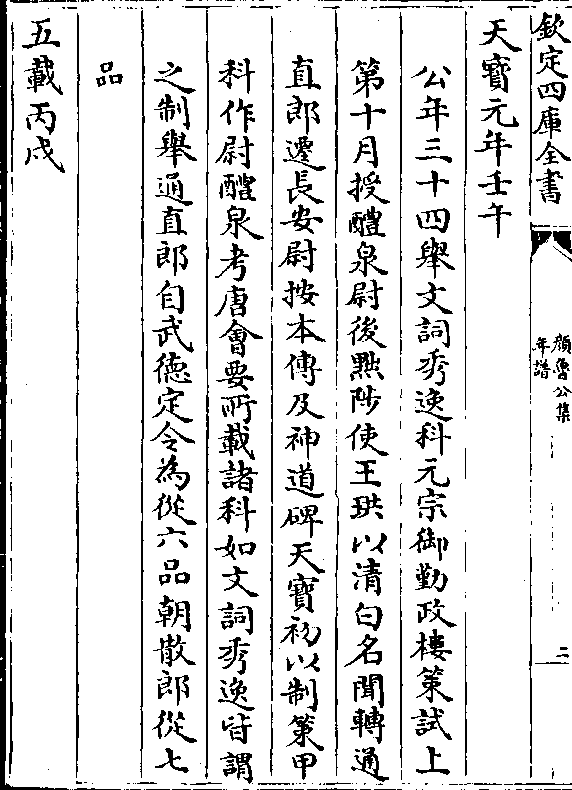 欽定四庫全書
顔魯公集
年譜
二
天寳元年壬午
公年三十四舉文詞秀逸科元宗御勤政樓策試上
第十月授醴泉尉後黜陟使王珙以清白名聞轉通
直郎遷長安尉按本傳及神道碑天寳初以制策甲
科作尉醴泉考唐會要所載諸科如文詞秀逸皆謂
之制舉通直郎自武德定令為從六品朝散郎從七
品
五載丙戌